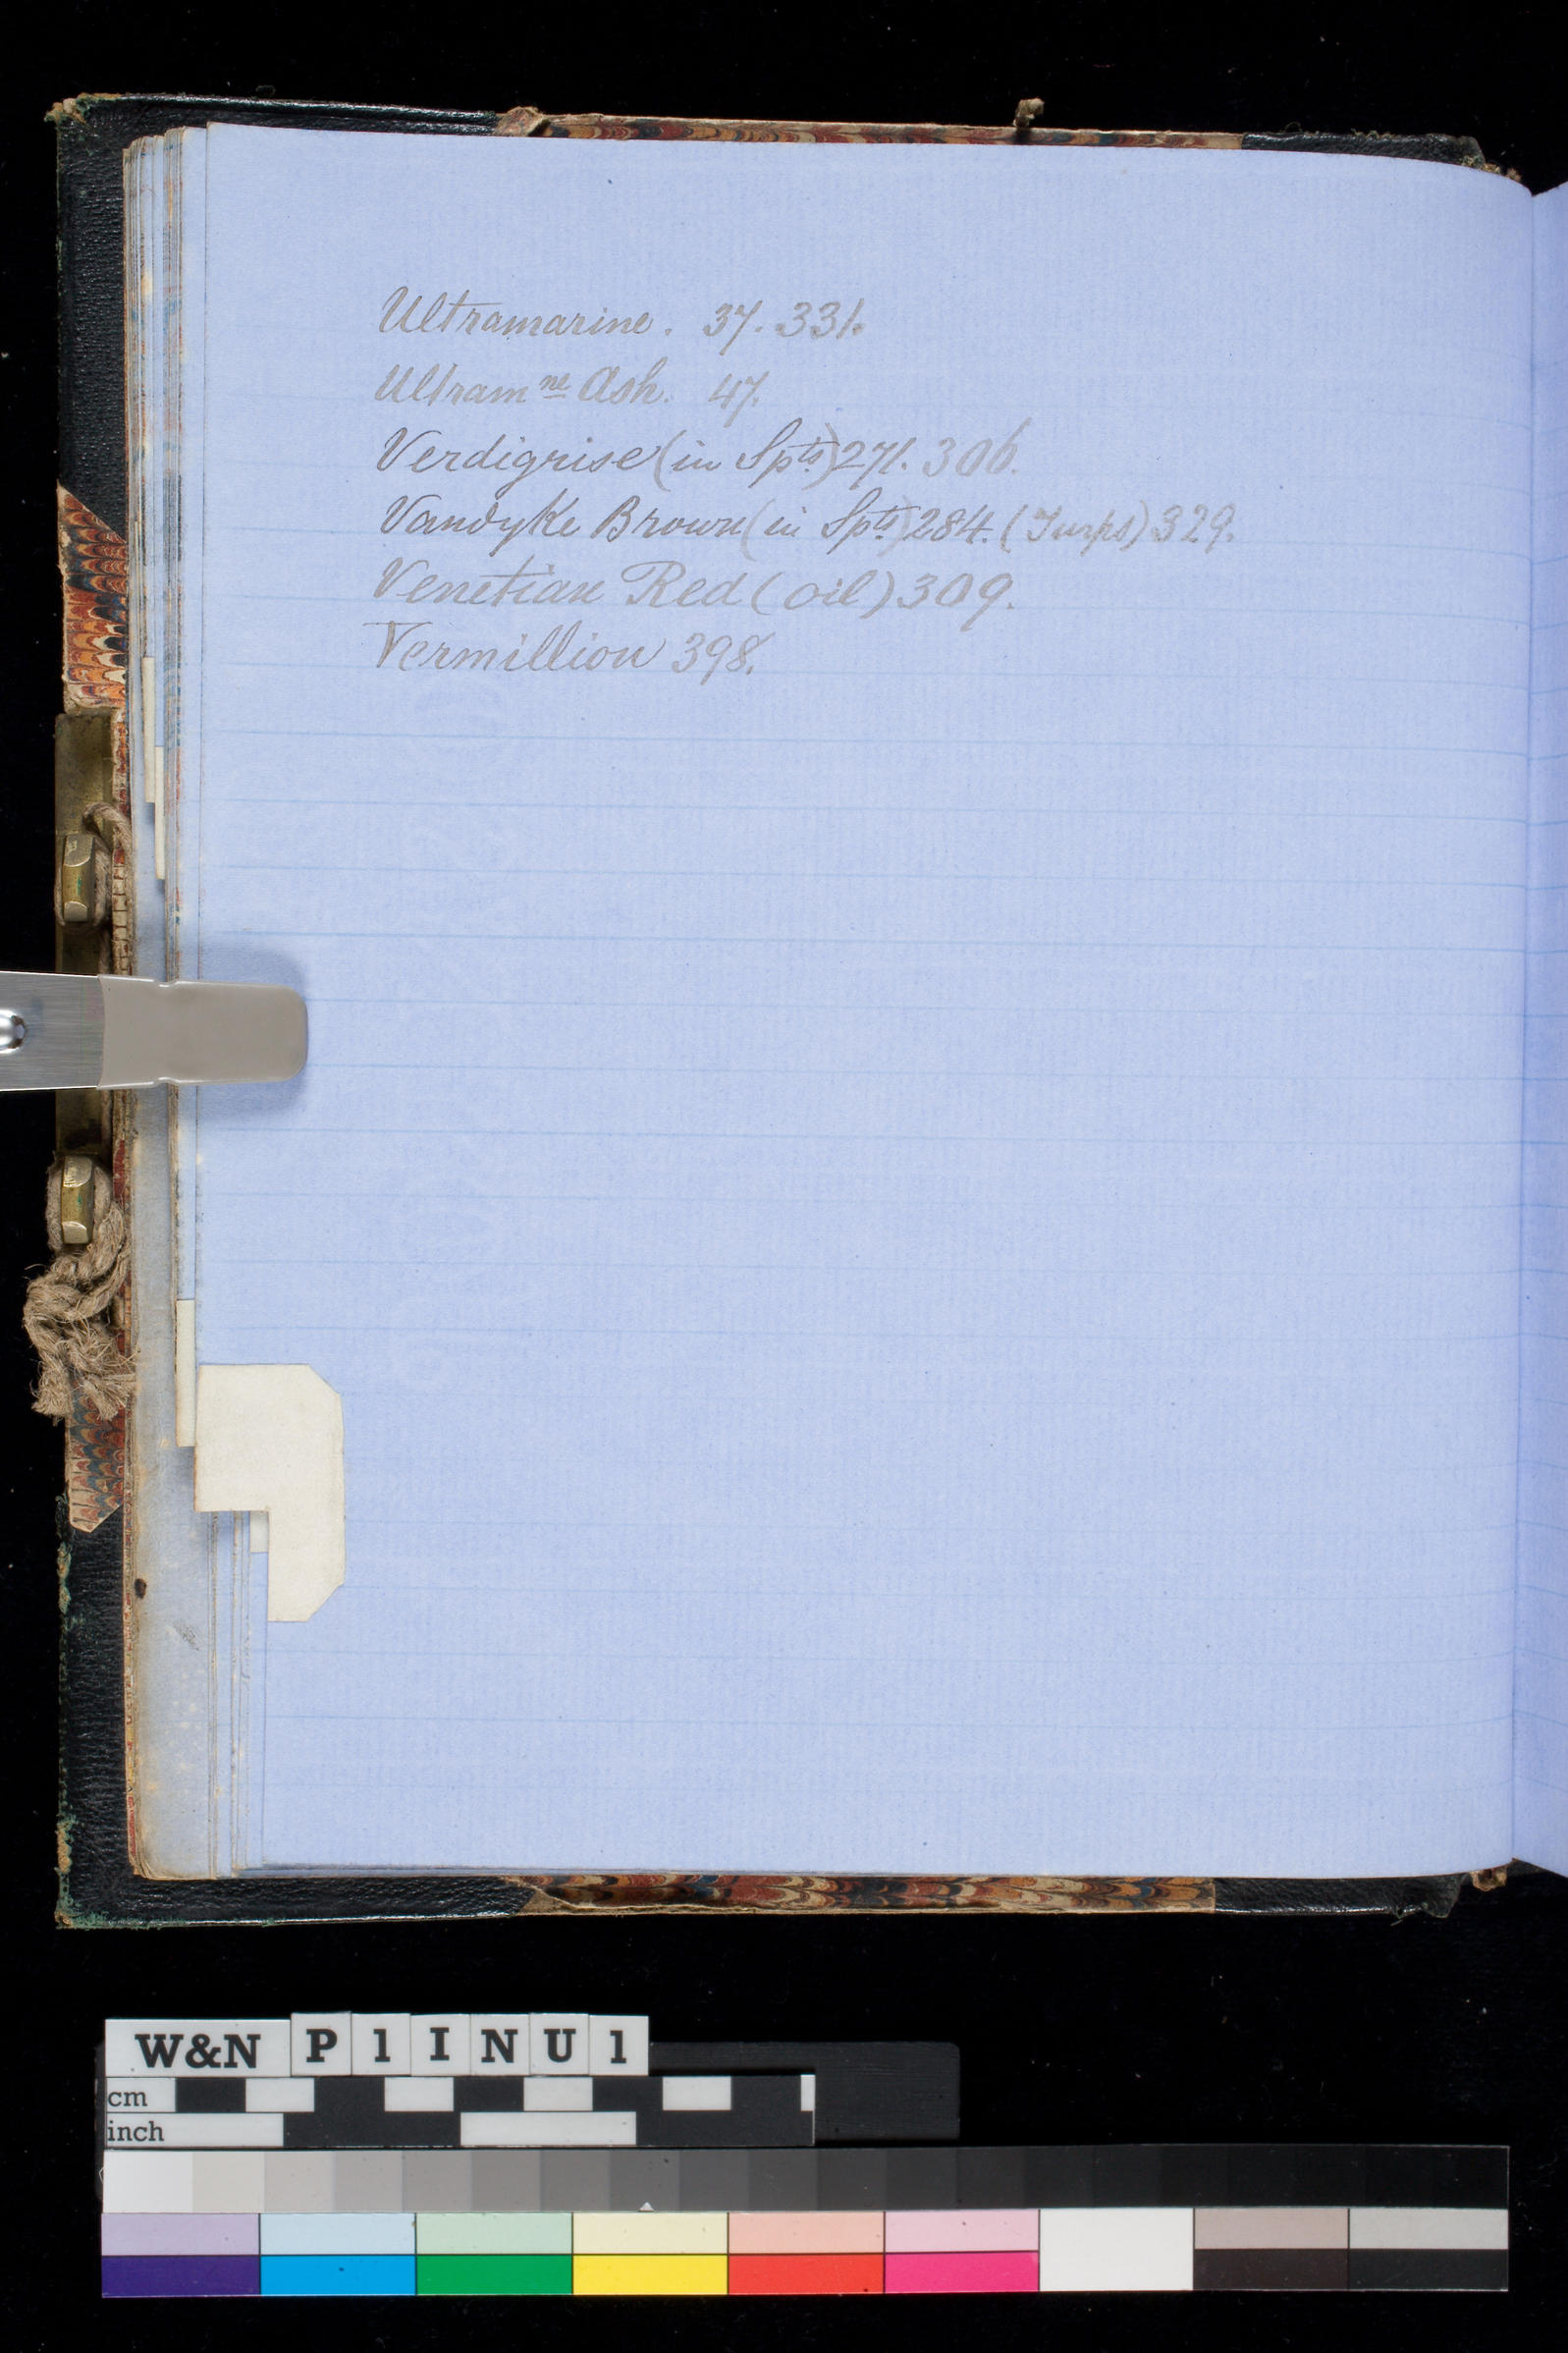 Ultramarine. 37. 331.
Ultram ne Ash. 47.
Verdigrise (in Spts) 271. 306.
Vandyke Brown (in Spts) 284. (Turps) 329.
Venetian Red (oil) 309.
Vermillion 398.
W&N P1INU1
cm
inch